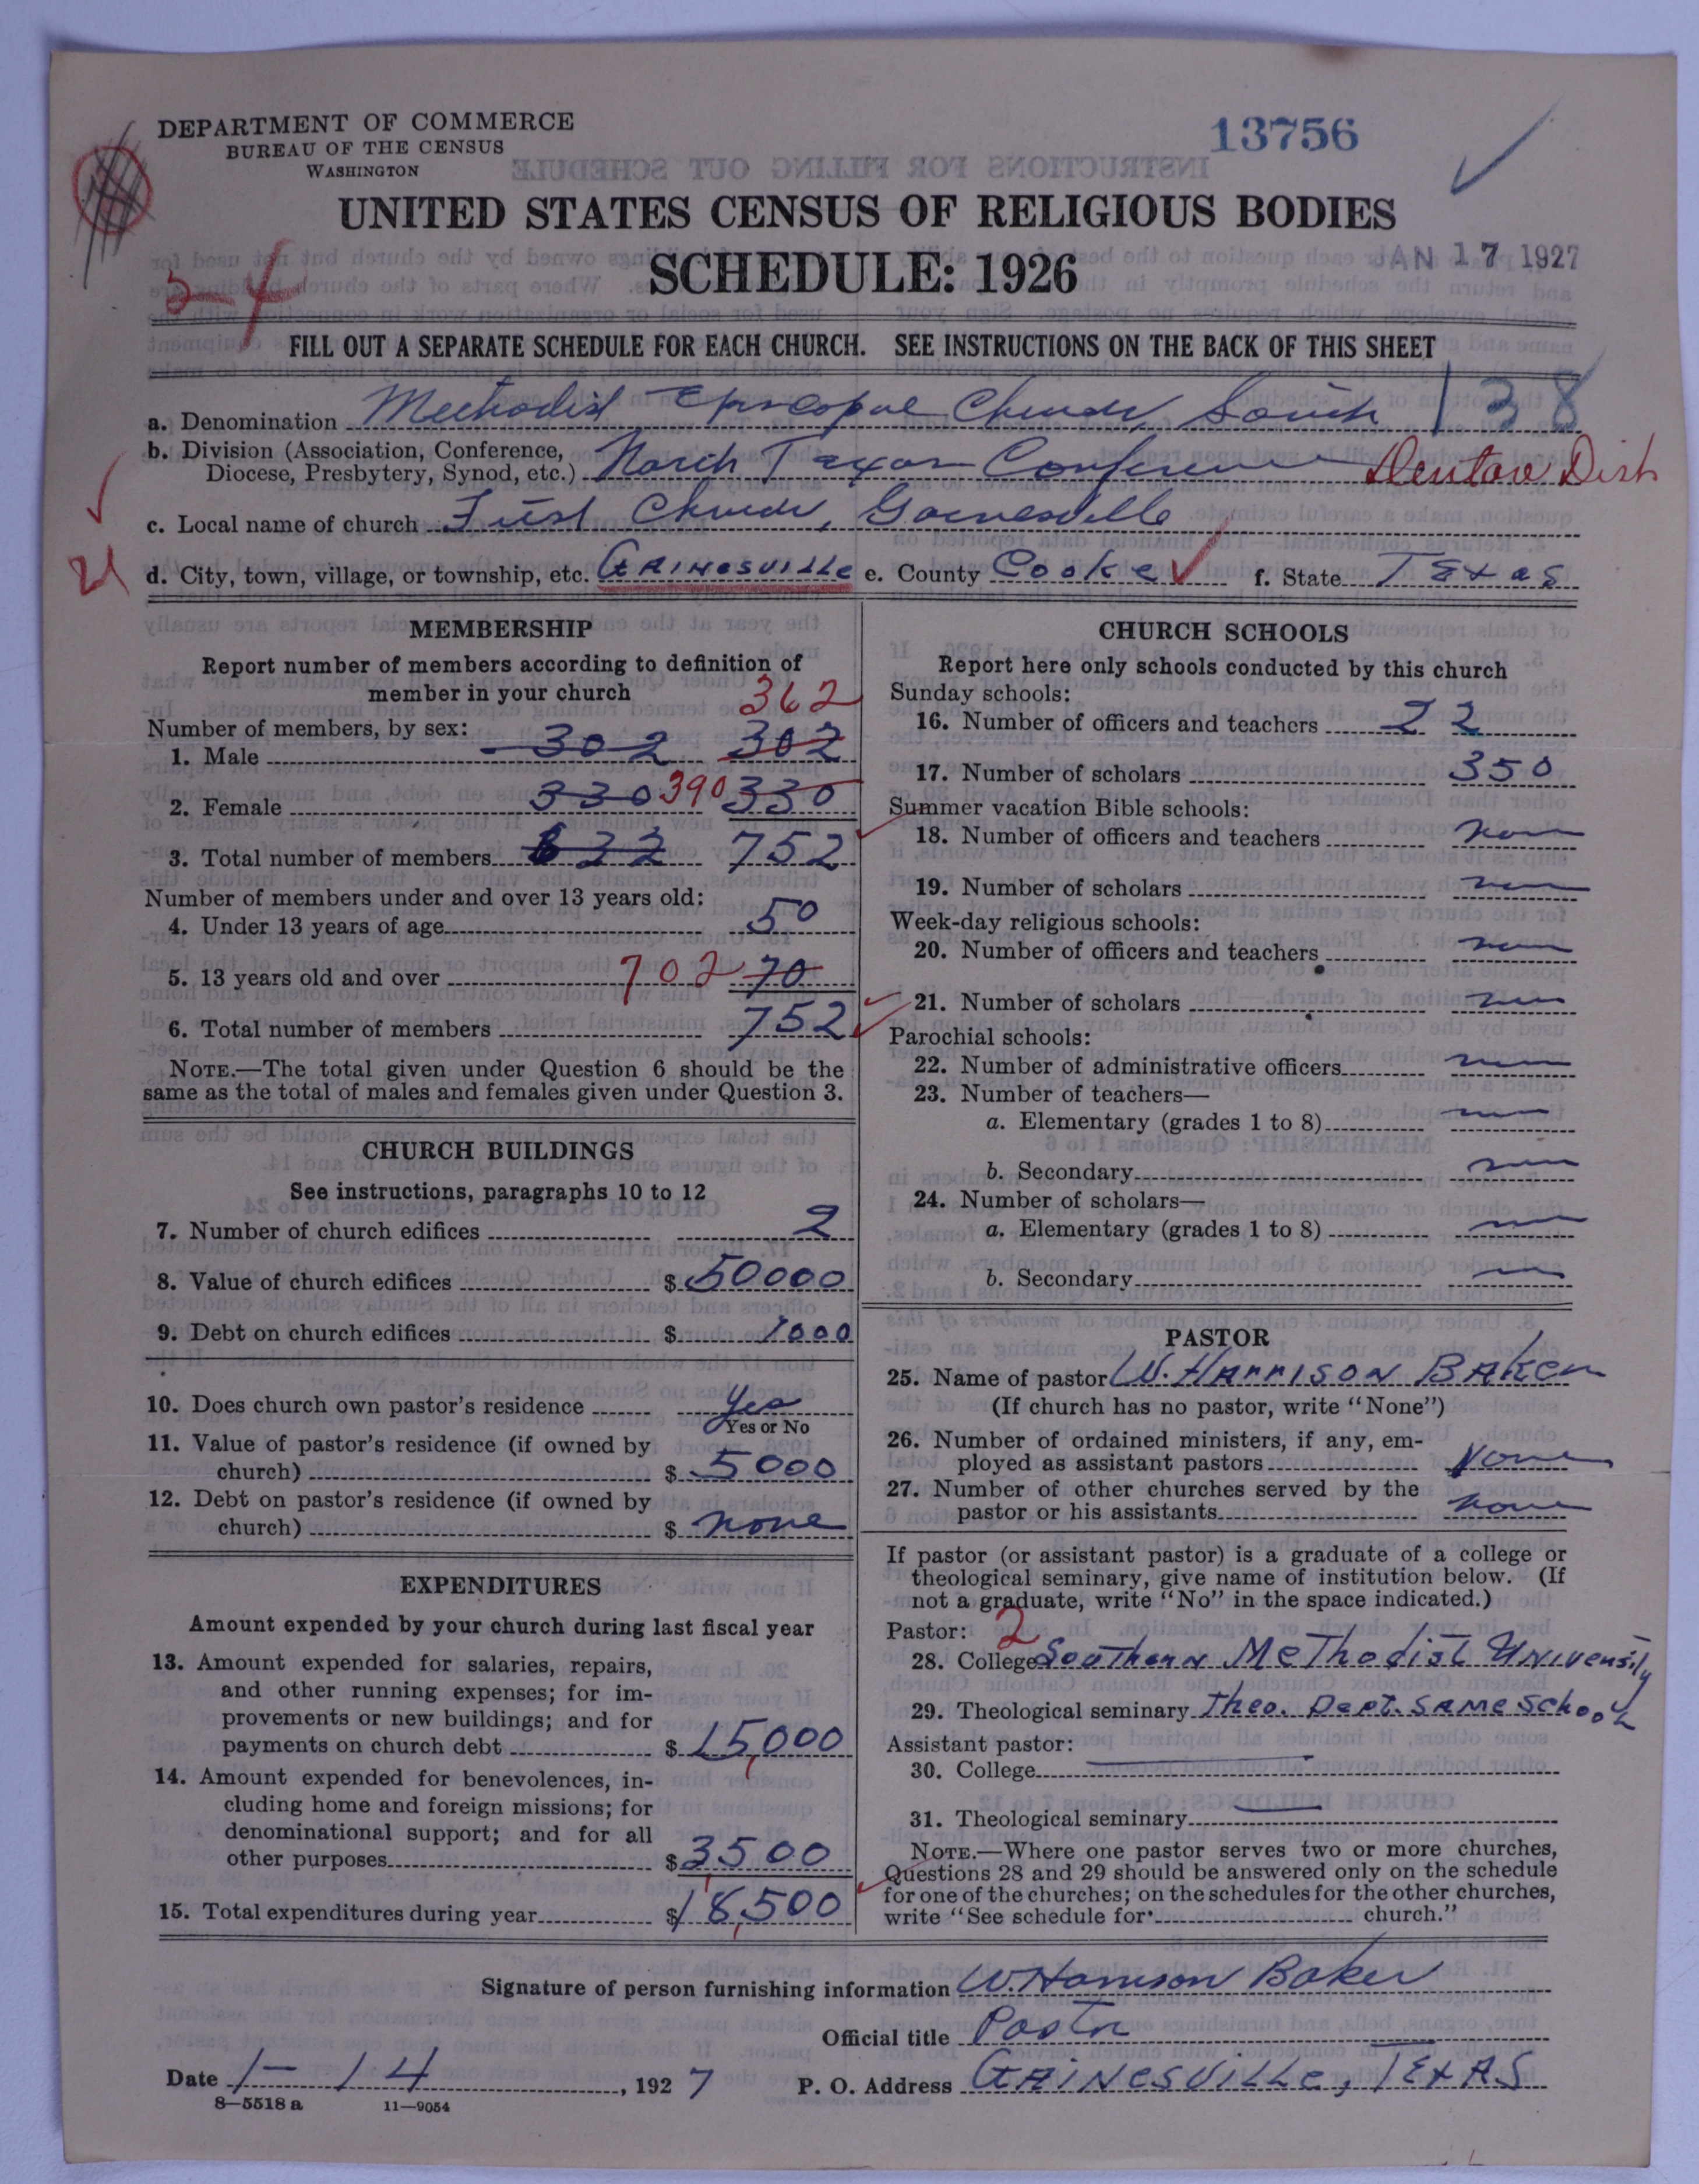 DEPARTMENT OF COMMERCE
BUREAU OF THE CENSUS
WASHINGTON
13756
UNITED STATES CENSUS OF RELIGIOUS BODIES
SCHEDULE: 1926
JAN 17 1927
FILL OUT A SEPARATE SCHEDULE FOR EACH CHURCH. SEE INSTRUCTIONS ON THE BACK OF THIS SHEET
a. Denomination Methodist Episcopal Church, South 138
b. Division (Association, Conference,
Diocese, Presbytery, Synod, etc.) North Texas Conference Denton Dist
c. Local name of church First Church, Gainesville
d. City, town, village, or township, etc. GAINESVILLE e. County Cooke f. State TExas
MEMBERSHIP
Report number of members according to definition of
member in your church
362
Number of members, by sex:
1. Male 302 302
2. Female 330 390 330
3. Total number of members 632 752
Number of members under and over 13 years old:
4. Under 13 years of age 50
5. 13 years old and over 702 70
6. Total number of members 752
NOTE.—The total given under Question 6 should be the
same as the total of males and females given under Question 3.
CHURCH BUILDINGS
See instructions, paragraphs 10 to 12
7. Number of church edifices 2
8. Value of church edifices $ 50000
9. Debt on church edifices $ 1000
10. Does church own pastor's residence Yes
Yes or No
11. Value of pastor's residence (if owned by
church) $ 5000
12. Debt on pastor's residence (if owned by
church) $ none
EXPENDITURES
Amount expended by your church during last fiscal year
13. Amount expended for salaries, repairs,
and other running expenses; for im-
provements or new buildings; and for
payments on church debt $ 15,000
14. Amount expended for benevolences, in-
cluding home and foreign missions; for
denominational support; and for all
other purposes $ 3500
15. Total expenditures during year $ 18,500
CHURCH SCHOOLS
Report here only schools conducted by this church
Sunday schools:
16. Number of officers and teachers 22
17. Number of scholars 350
Summer vacation Bible schools:
18. Number of officers and teachers none
19. Number of scholars none
Week-day religious schools:
20. Number of officers and teachers none
21. Number of scholars none
Parochial schools:
22. Number of administrative officers none
23. Number of teachers—
a. Elementary (grades 1 to 8) none
b. Secondary none
24. Number of scholars—
a. Elementary (grades 1 to 8)
b. Secondary
PASTOR
25. Name of pastor W. HARRISON BAKER
(If church has no pastor, write "None")
26. Number of ordained ministers, if any, em-
ployed as assistant pastors None
27. Number of other churches served by the
pastor or his assistants none
If pastor (or assistant pastor) is a graduate of a college or
theological seminary, give name of institution below. (If
not a graduate, write "No" in the space indicated.)
Pastor: 2
28. College Southern Methodist University
29. Theological seminary Theo. Dept. SAME School
Assistant pastor:
30. College
31. Theological seminary
NOTE.—Where one pastor serves two or more churches,
Questions 28 and 29 should be answered only on the schedule
for one of the churches; on the schedules for the other churches,
write "See schedule for church."
Signature of person furnishing information W. Harrison Baker
Official title Pastor
Date 1-14, 1927 P. O. Address GAINESVILLE, TEXAS
8—5518 a 11—9054